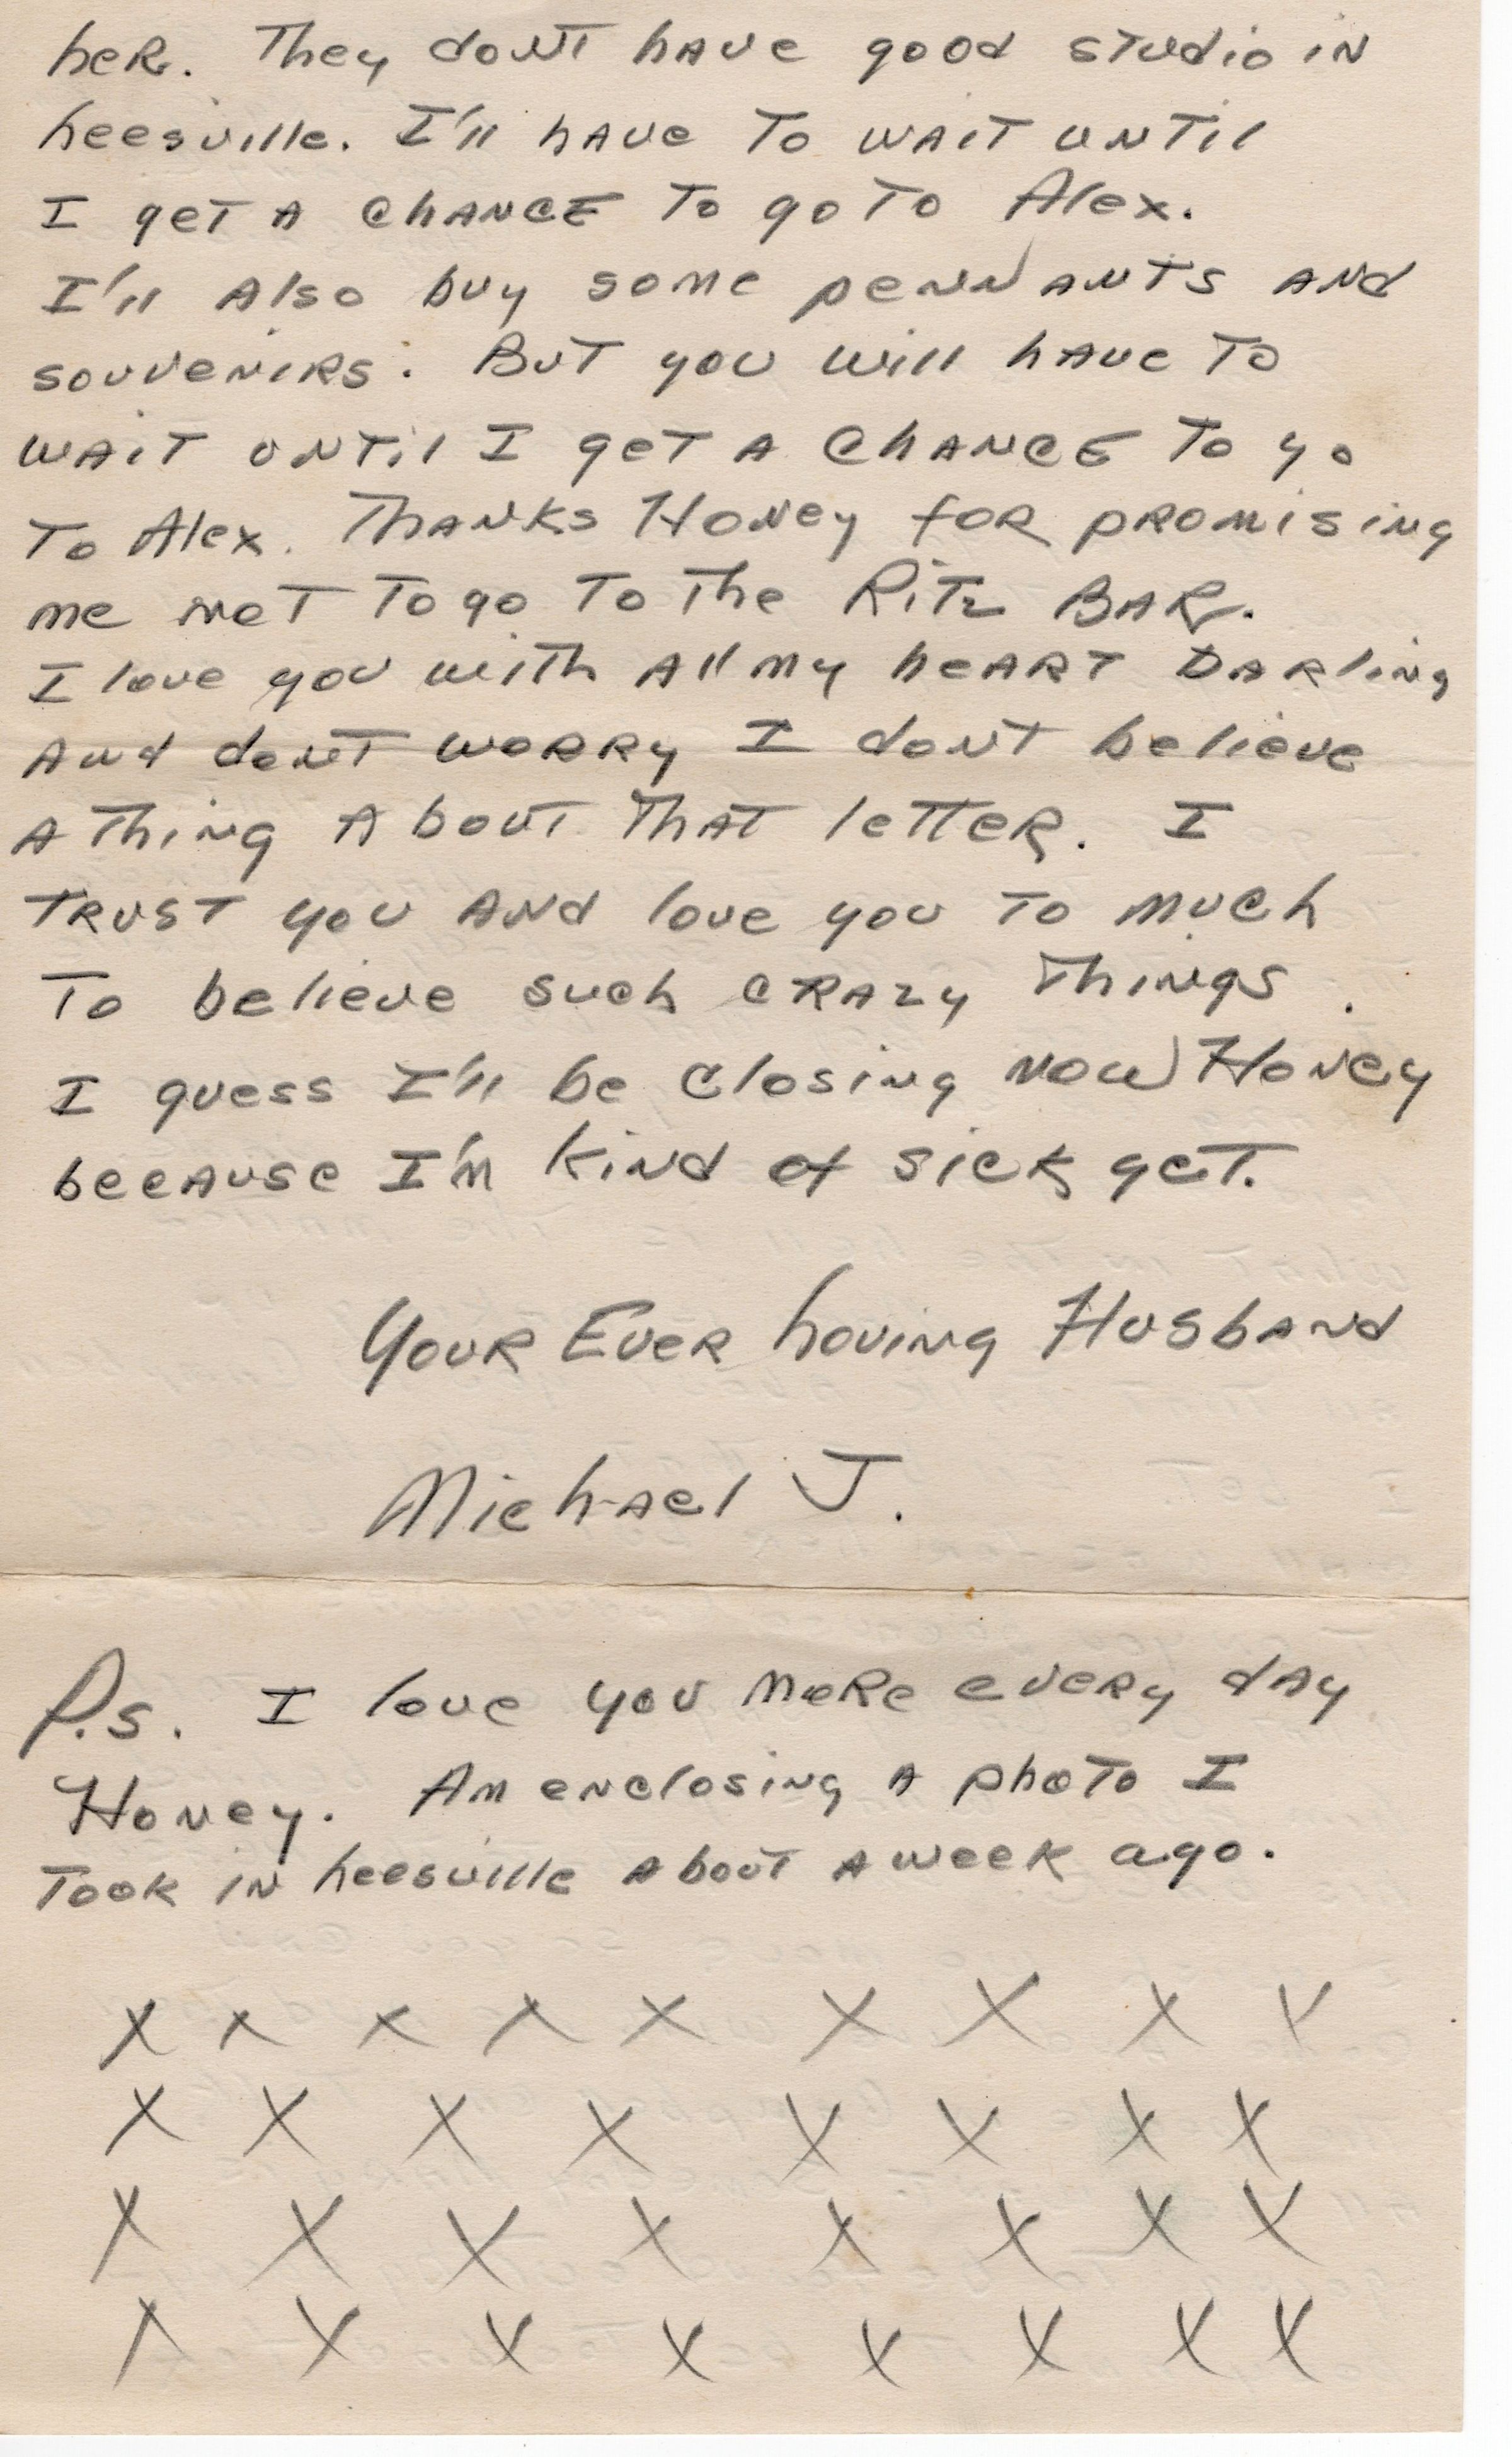 her. They dont have good studio in
Leesville. I'll have to wait until
I get a chance to go to Alex.
I'll also buy some pennants and
souvenirs. But you will have to
wait until I get a chance to go
to Alex. Thanks Honey for promising
me not to go to the Ritz Bar.
I love you with all my heart Darling
and dont worry I dont believe
a thing about that letter. I
trust you and love you to much
to believe such crazy things.
I guess I'll be closing now Honey
because I'm kind of sick yet.
Your Ever Loving Husband
Michael J.
P.s. I love you more every day
Honey. Am enclosing a photo I
took in Leesville about a week ago.
X X X X X X X X X
X X X X X X X X
X X X X X X X X
X X X X X X X X